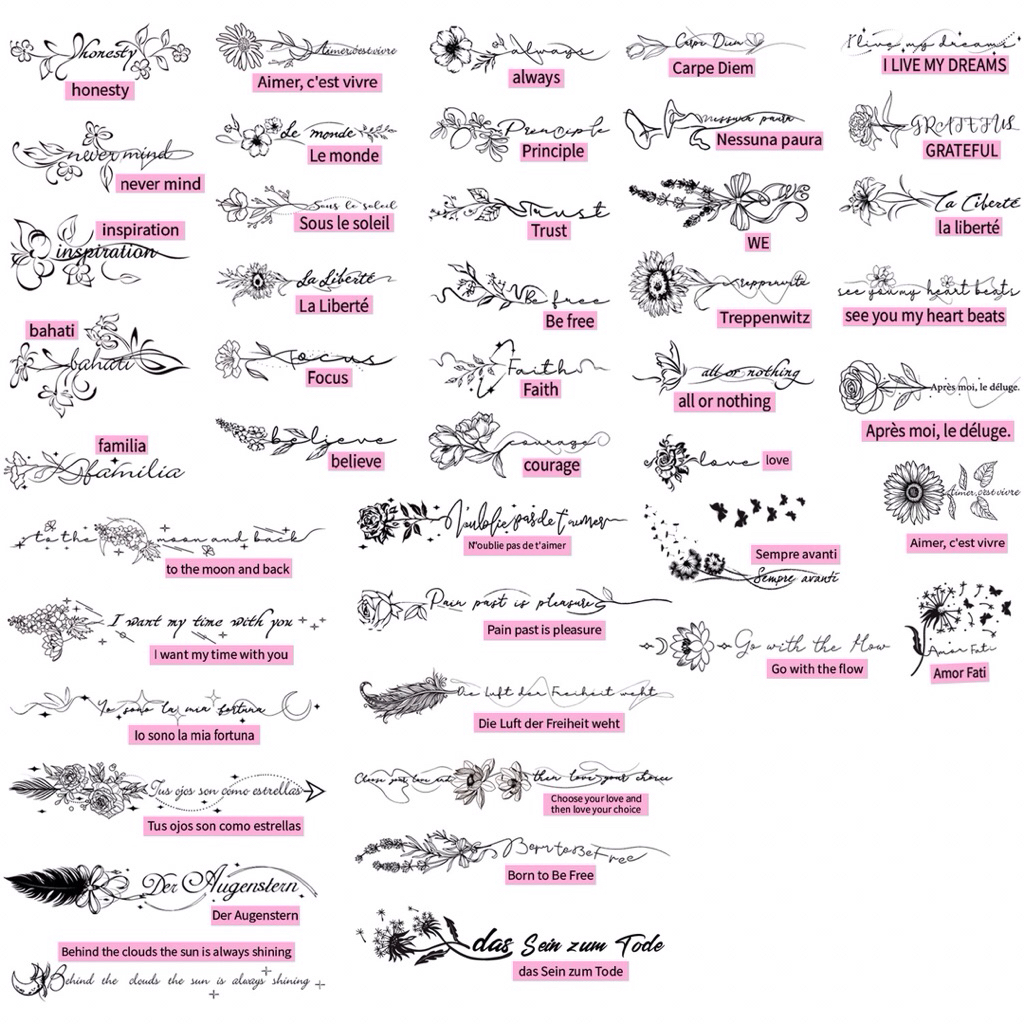 honesty
honesty
never mind
never mind
inspiration
inspiration
bahati
bahati
familia
familia
to the moon and back
to the moon and back
I want my time with you
I want my time with you
Io sono la mia fortuna
Io sono la mia fortuna
Tus ojos son como estrellas
Tus ojos son como estrellas
Der Augenstern
Der Augenstern
Behind the clouds the sun is always shining
Behind the clouds the sun is always shining
Aimer, c'est vivre
Aimer, c'est vivre
Le monde
Le monde
Sous le soleil
Sous le soleil
La Liberté
La Liberté
Focus
Focus
believe
believe
always
always
Principle
Principle
Trust
Trust
Be free
Be free
Faith
Faith
courage
courage
N'oublie pas de t'aimer
N'oublie pas de t'aimer
Pain past is pleasure
Pain past is pleasure
Die Luft der Freiheit weht
Die Luft der Freiheit weht
Choose your love and then love your choice
Choose your love and
then love your choice
Born to Be Free
Born to Be Free
das Sein zum Tode
das Sein zum Tode
Carpe Diem
Carpe Diem
Nessuna paura
Nessuna paura
WE
WE
Treppenwitz
all or nothing
all or nothing
love
love
Sempre avanti
Sempre avanti
Go with the flow
Go with the flow
I live my dreams
I LIVE MY DREAMS
GRATEFUL
GRATEFUL
la Liberté
la liberté
see you my heart beats
see you my heart beats
Après moi, le déluge.
Après moi, le déluge.
Aimer, c'est vivre
Aimer, c'est vivre
Amor Fati
Amor Fati